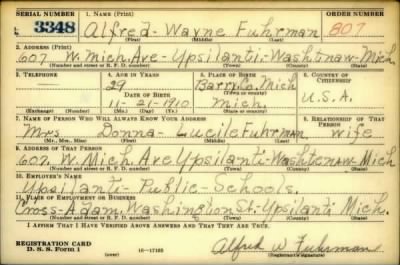 SERIAL NUMBER 1. NAME (Print) ORDER NUMBER
3348 Alfred - Wayne Fuhrman 807
(First) (Middle) (Last)
2. ADDRESS (Print)
607 W. Mich. Ave - Ypsilanti - Washtenaw - Mich.
(Number and street or R. F. D. number) (Town) (County) (State)
3. TELEPHONE 4. AGE IN YEARS 5. PLACE OF BIRTH 6. COUNTRY OF CITIZENSHIP
29 Barry Co. Mich
DATE OF BIRTH (Town or county)
11-21-1910 Mich. U.S.A.
(Exchange) (Number) (Mo.) (Day) (Yr.) (State or country)
7. NAME OF PERSON WHO WILL ALWAYS KNOW YOUR ADDRESS 8. RELATIONSHIP OF THAT PERSON
Mrs Donna - Lucile Fuhrman wife
(Mr., Mrs., Miss) (First) (Middle) (Last)
9. ADDRESS OF THAT PERSON
607 W. Mich. Ave Ypsilanti - Washtenaw Mich
(Number and street or R. F. D. number) (Town) (County) (State)
10. EMPLOYER'S NAME
Ypsilanti - Public - Schools.
11. PLACE OF EMPLOYMENT OR BUSINESS
Cross - Adam, Washington St. - Ypsilanti Mich.
(Number and street or R. F. D. number) (Town) (County) (State)
I AFFIRM THAT I HAVE VERIFIED ABOVE ANSWERS AND THAT THEY ARE TRUE.
REGISTRATION CARD
D. S. S. Form 1 (over) 16-17105 Alfred W Fuhrman
(Registrant's signature)